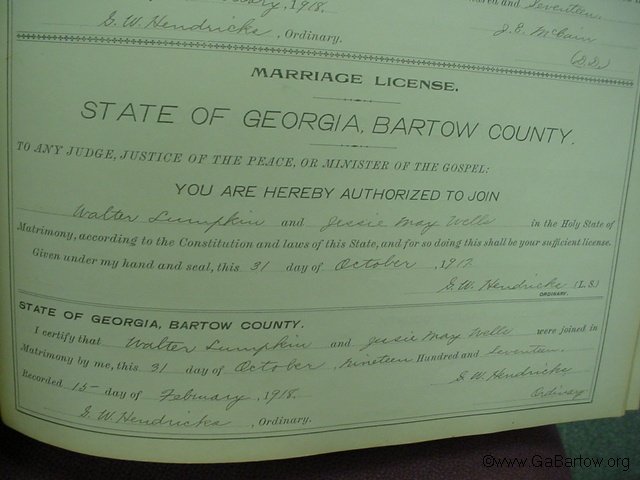 1918.
Hundred and Seventeen.
G. W. Hendricks, Ordinary.
J. E. McCain
MARRIAGE LICENSE.
STATE OF GEORGIA, BARTOW COUNTY.
TO ANY JUDGE, JUSTICE OF THE PEACE, OR MINISTER OF THE GOSPEL:
YOU ARE HEREBY AUTHORIZED TO JOIN
Walter Lumpkin and Jessie May Wells in the Holy State of
Matrimony, according to the Constitution and laws of this State, and for so doing this shall be your sufficient license.
Given under my hand and seal, this 31 day of October, 1917.
G. W. Hendricks (L. S.)
ORDINARY.
STATE OF GEORGIA, BARTOW COUNTY.
I certify that Walter Lumpkin and Jessie May Wells were joined in
Matrimony by me, this 31 day of October, Nineteen Hundred and Seventeen.
Recorded 15 day of February, 1918.
G. W. Hendricks
Ordinary
G. W. Hendricks, Ordinary.
©www.GaBartow.org